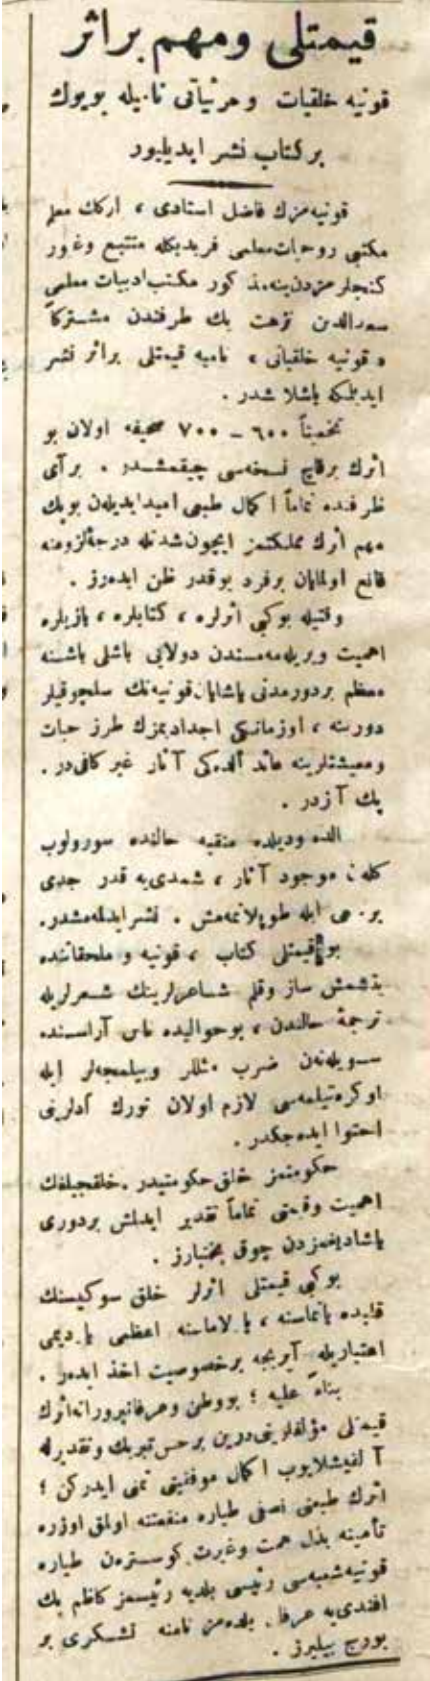 قیمتلی ومهم براثر
قونیه خلقیات وحرثیاتی نامیله بویوك
برکتاب نشر ایدیلیور
قونیه‌مزك فاضل استادی ، ارکك معلم
مکتبی روحیات‌معلمی فریدبکله متتبع وغیور
کنجلرمزدن‌ینه‌مذکور مکتب‌ادبیات معلمی
سعدالدین نزهت بك طرفندن مشترکاً
« قونیه خلقیاتی » نامیه قیمتلی براثر نشر
ایدیلمکه باشلا شدر .
تخمیناً ٦٠٠ - ٧٠٠ صحیفه اولان بو
اثرك برقاچ نسخه‌سی چیقمشدر . برآی
ظرفنده تماماً اکمال طبعی امیدایدیلن بویك
مهم اثرك مملکتمز ایچون‌شدتله درجهٔلزومنه
قانع اولمایان برفرد یوقدر ظن ایدەرز .
وقتیله بوکبی اثرلره ، کتابلره ، یازیلره
اهمیت ویریله‌مه‌سندن دولایی باشلی باشنه
معظم بردورمدنی یاشایان‌قونیه‌نك سلچوقیلر
دورینه ، اوزمانکی اجدادیمزك طرز حیات
ومعیشتلرینه عائد الده‌کی آثار غیرکافی‌در .
پك آزدر .
الده ودیلده منقبه حالنده سورولوب
کلن موجود آثار ، شمدی‌یه قدر جدی
بر سعی ایله طوپلانمه‌مش . نشرایدلمه‌مشدر .
بوقیمتلی کتاب ، قونیه و ملحقاتنده
یتشمش ساز وقلم شاعرلرینك شعرلریله
ترجمهٔ حالندن ، بوحوالیده ناس آراسنده
سویله‌نن ضرب مثللر وبیلمجه‌لر ایله
اوکره‌تیلمه‌سی لازم اولان تورك آدلرینی
احتوا ایده‌جکدر .
حکومتمز خلق حکومتیدر . خلقجیلغك
اهمیت وقیمتی تماماً تقدیر ایدلمش بردوری
یاشادیغمزدن چوق بختیارز .
بوکبی قیمتلی اثرلر خلق سوکیسنك
قلبده یانماسنه ، پارلاماسنه اعظمی یاردیمی
اعتباریله آیریجه برخصوصیت اخذ ایدەر .
بناءً علیه ؛ بووطن وعرفانپرورانه‌اثرك
قیمتلی مؤلفلرینی‌درین برحس تبریك وتقدیرله
آلقیشلایوب اکمال موفقیتی تمنی ایدرکن ؛
اثرك طبعنی نصفی طیاره منفعتنه اولمق اوزره
تأمینه بذل همت وغیرت کوسترەن طیاره
قونیه‌شعبه‌سی رئیسی بلدیه رئیسمز کاظم بك
افندی‌یه عرفا، بلده‌مز نامنه تشکری بر
بورج بیلیرز .